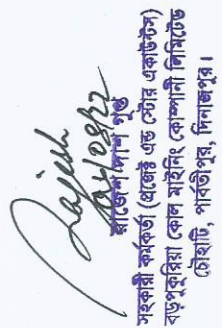 Rajesh
রাজেশ পাল গুপ্ত
সহকারী কর্মকর্তা (প্রজেক্ট এন্ড স্টোর একাউন্টস)
বড়পুকুরিয়া কোল মাইনিং কোম্পানী লিমিটেড
চৌহাটি, পার্বতীপুর, দিনাজপুর।